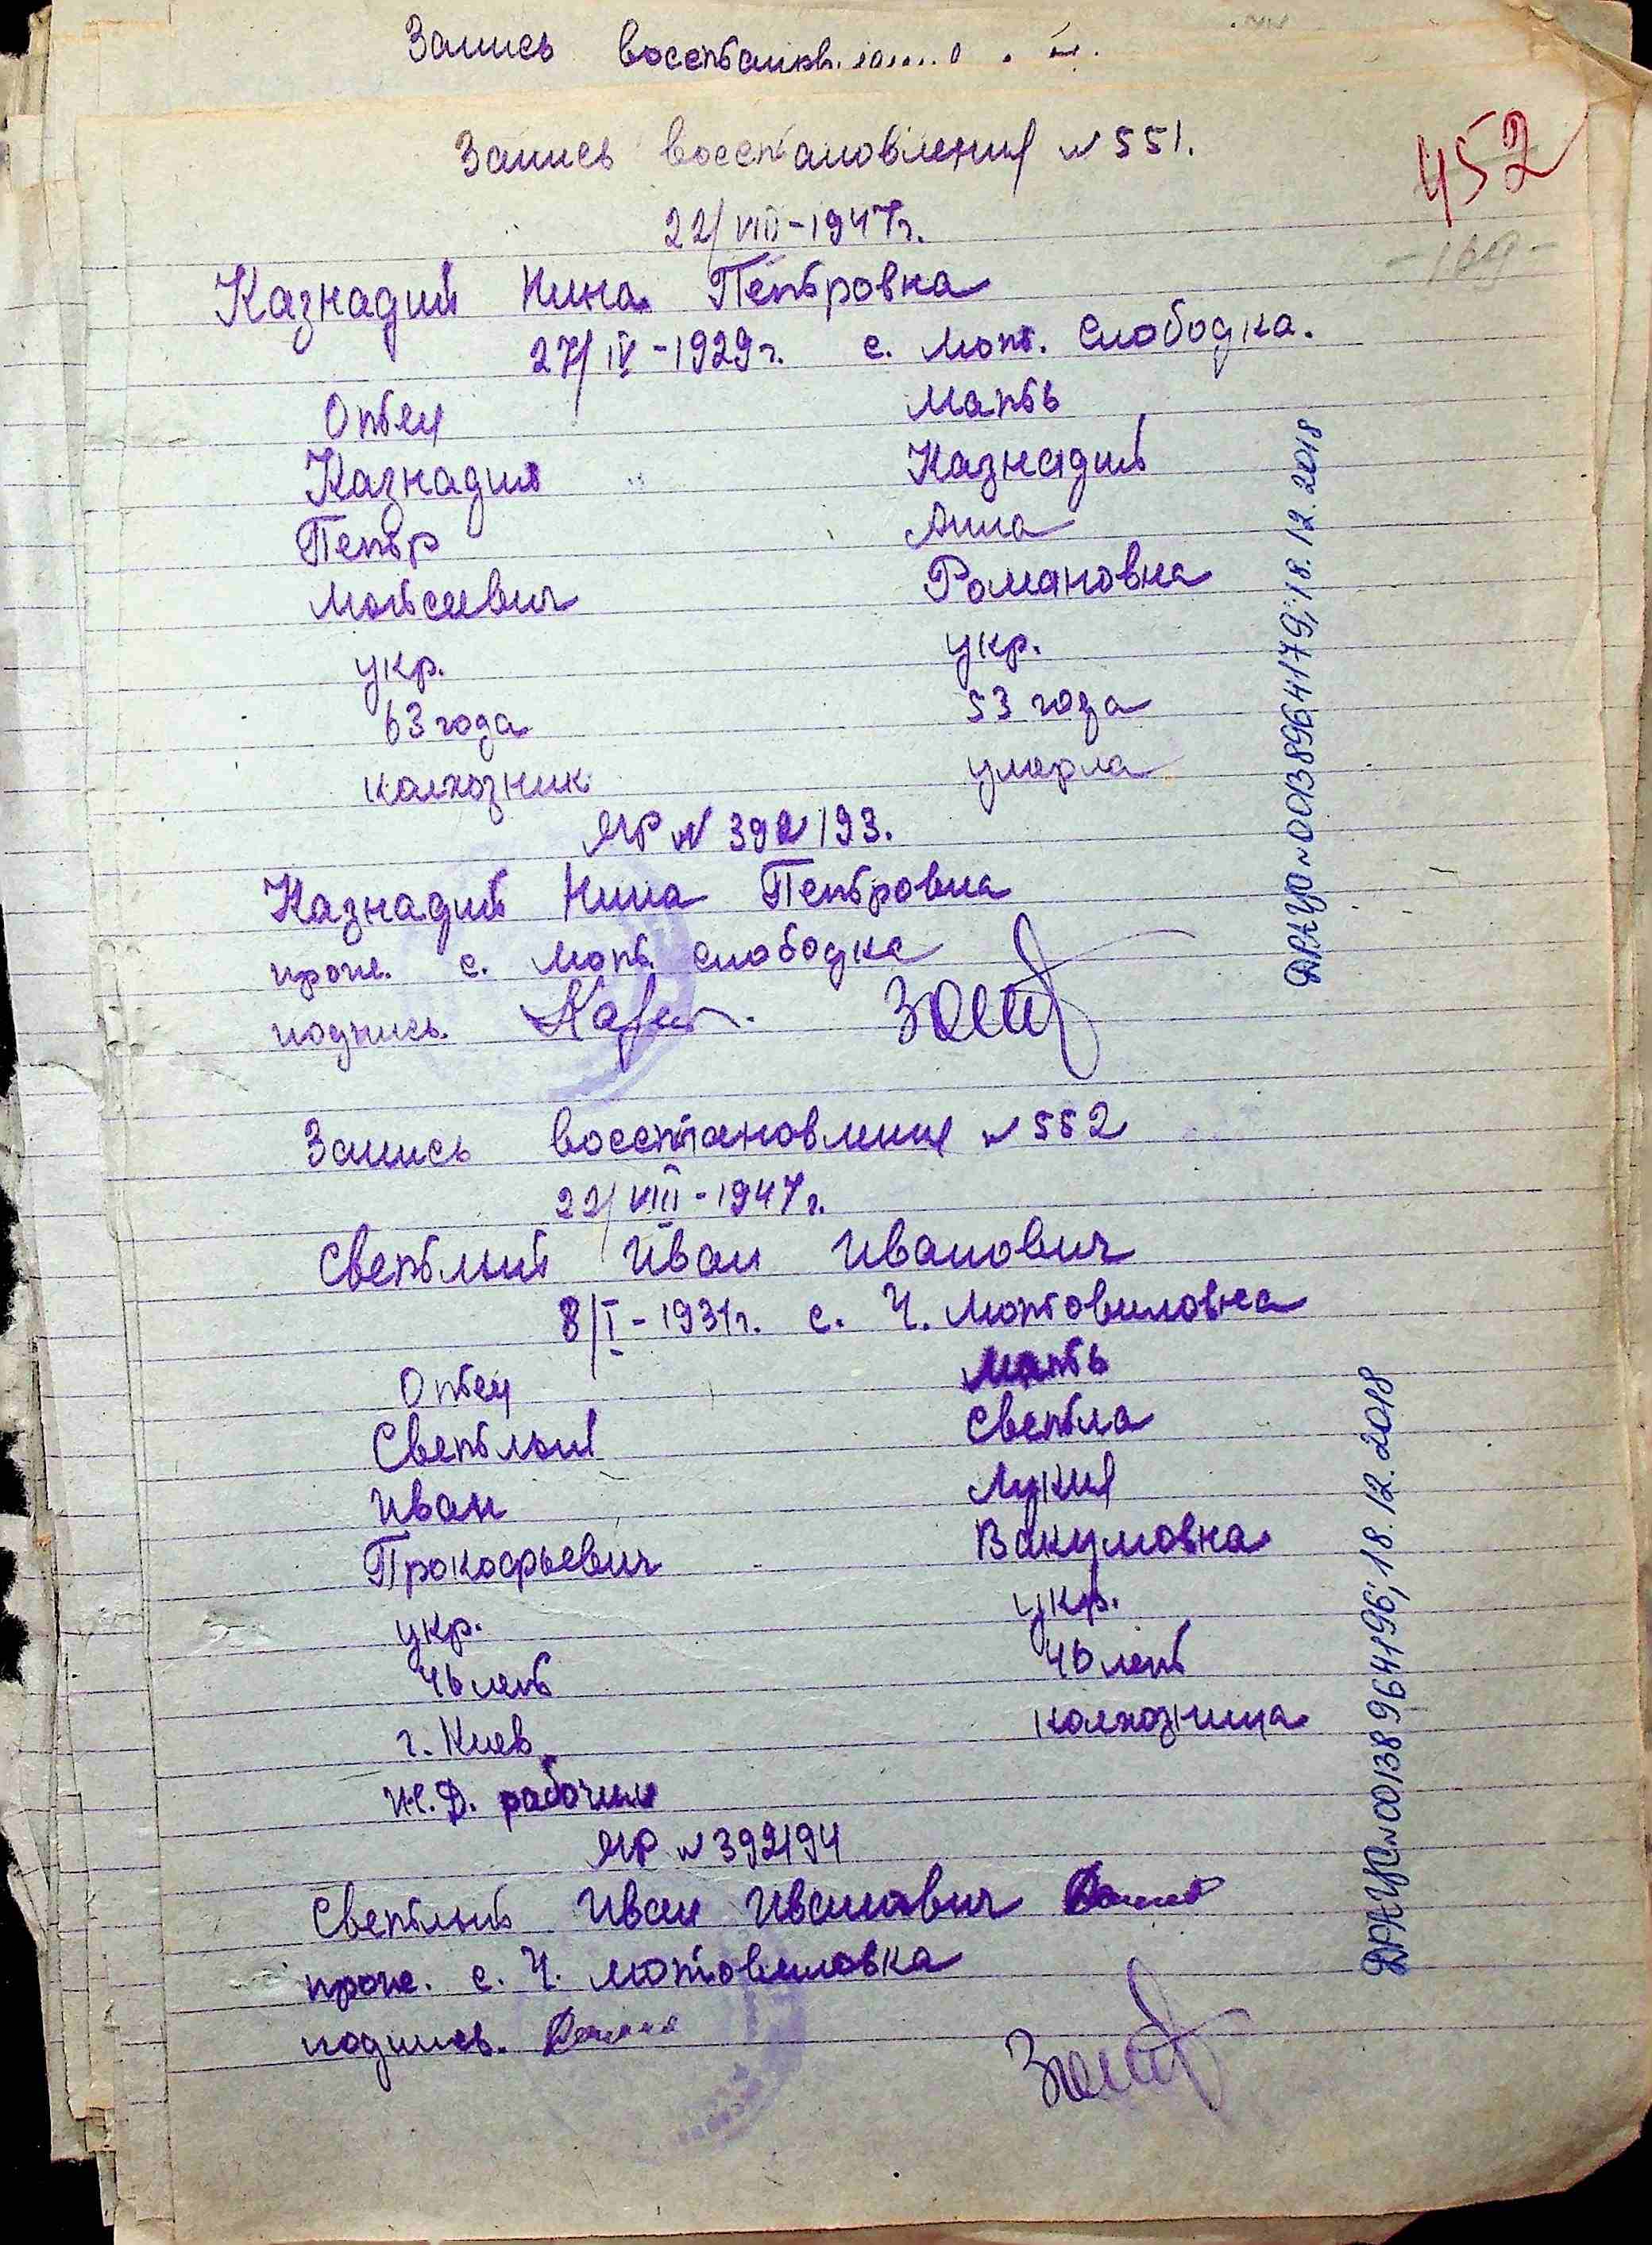 Запись
Запись восстановления № 551.
452
22/VIII-1947г.
Казнадий Нина Петровна
27/IV-1929г. с. Мот. Слободка.
Отец Мать
Казнадий Казнадий
Петр Анна
Мойсеевич Романовна
укр. укр.
63 года 53 года
колхозник умерла
ЯР № 392193.
Казнадий Нина Петровна
прож. с. Мот. Слободка
подпись.
ДРАЦО №00138964179; 18.12.2018
Запись восстановления № 552
22/VIII-1947г.
Светлый Иван Иванович
8/I-1931г. с. Ч. Мотовиловка
Отец Мать
Светлый Светла
Иван Лукия
Прокофьевич Вакумовна
укр. укр.
46 лет 46 лет
г. Киев колхозница
Ж.Д. рабочий
ЯР № 392194
Светлый Иван Иванович
прож. с. Ч. Мотовиловка
подпись.
ДРАЦО №00138964196; 18.12.2018